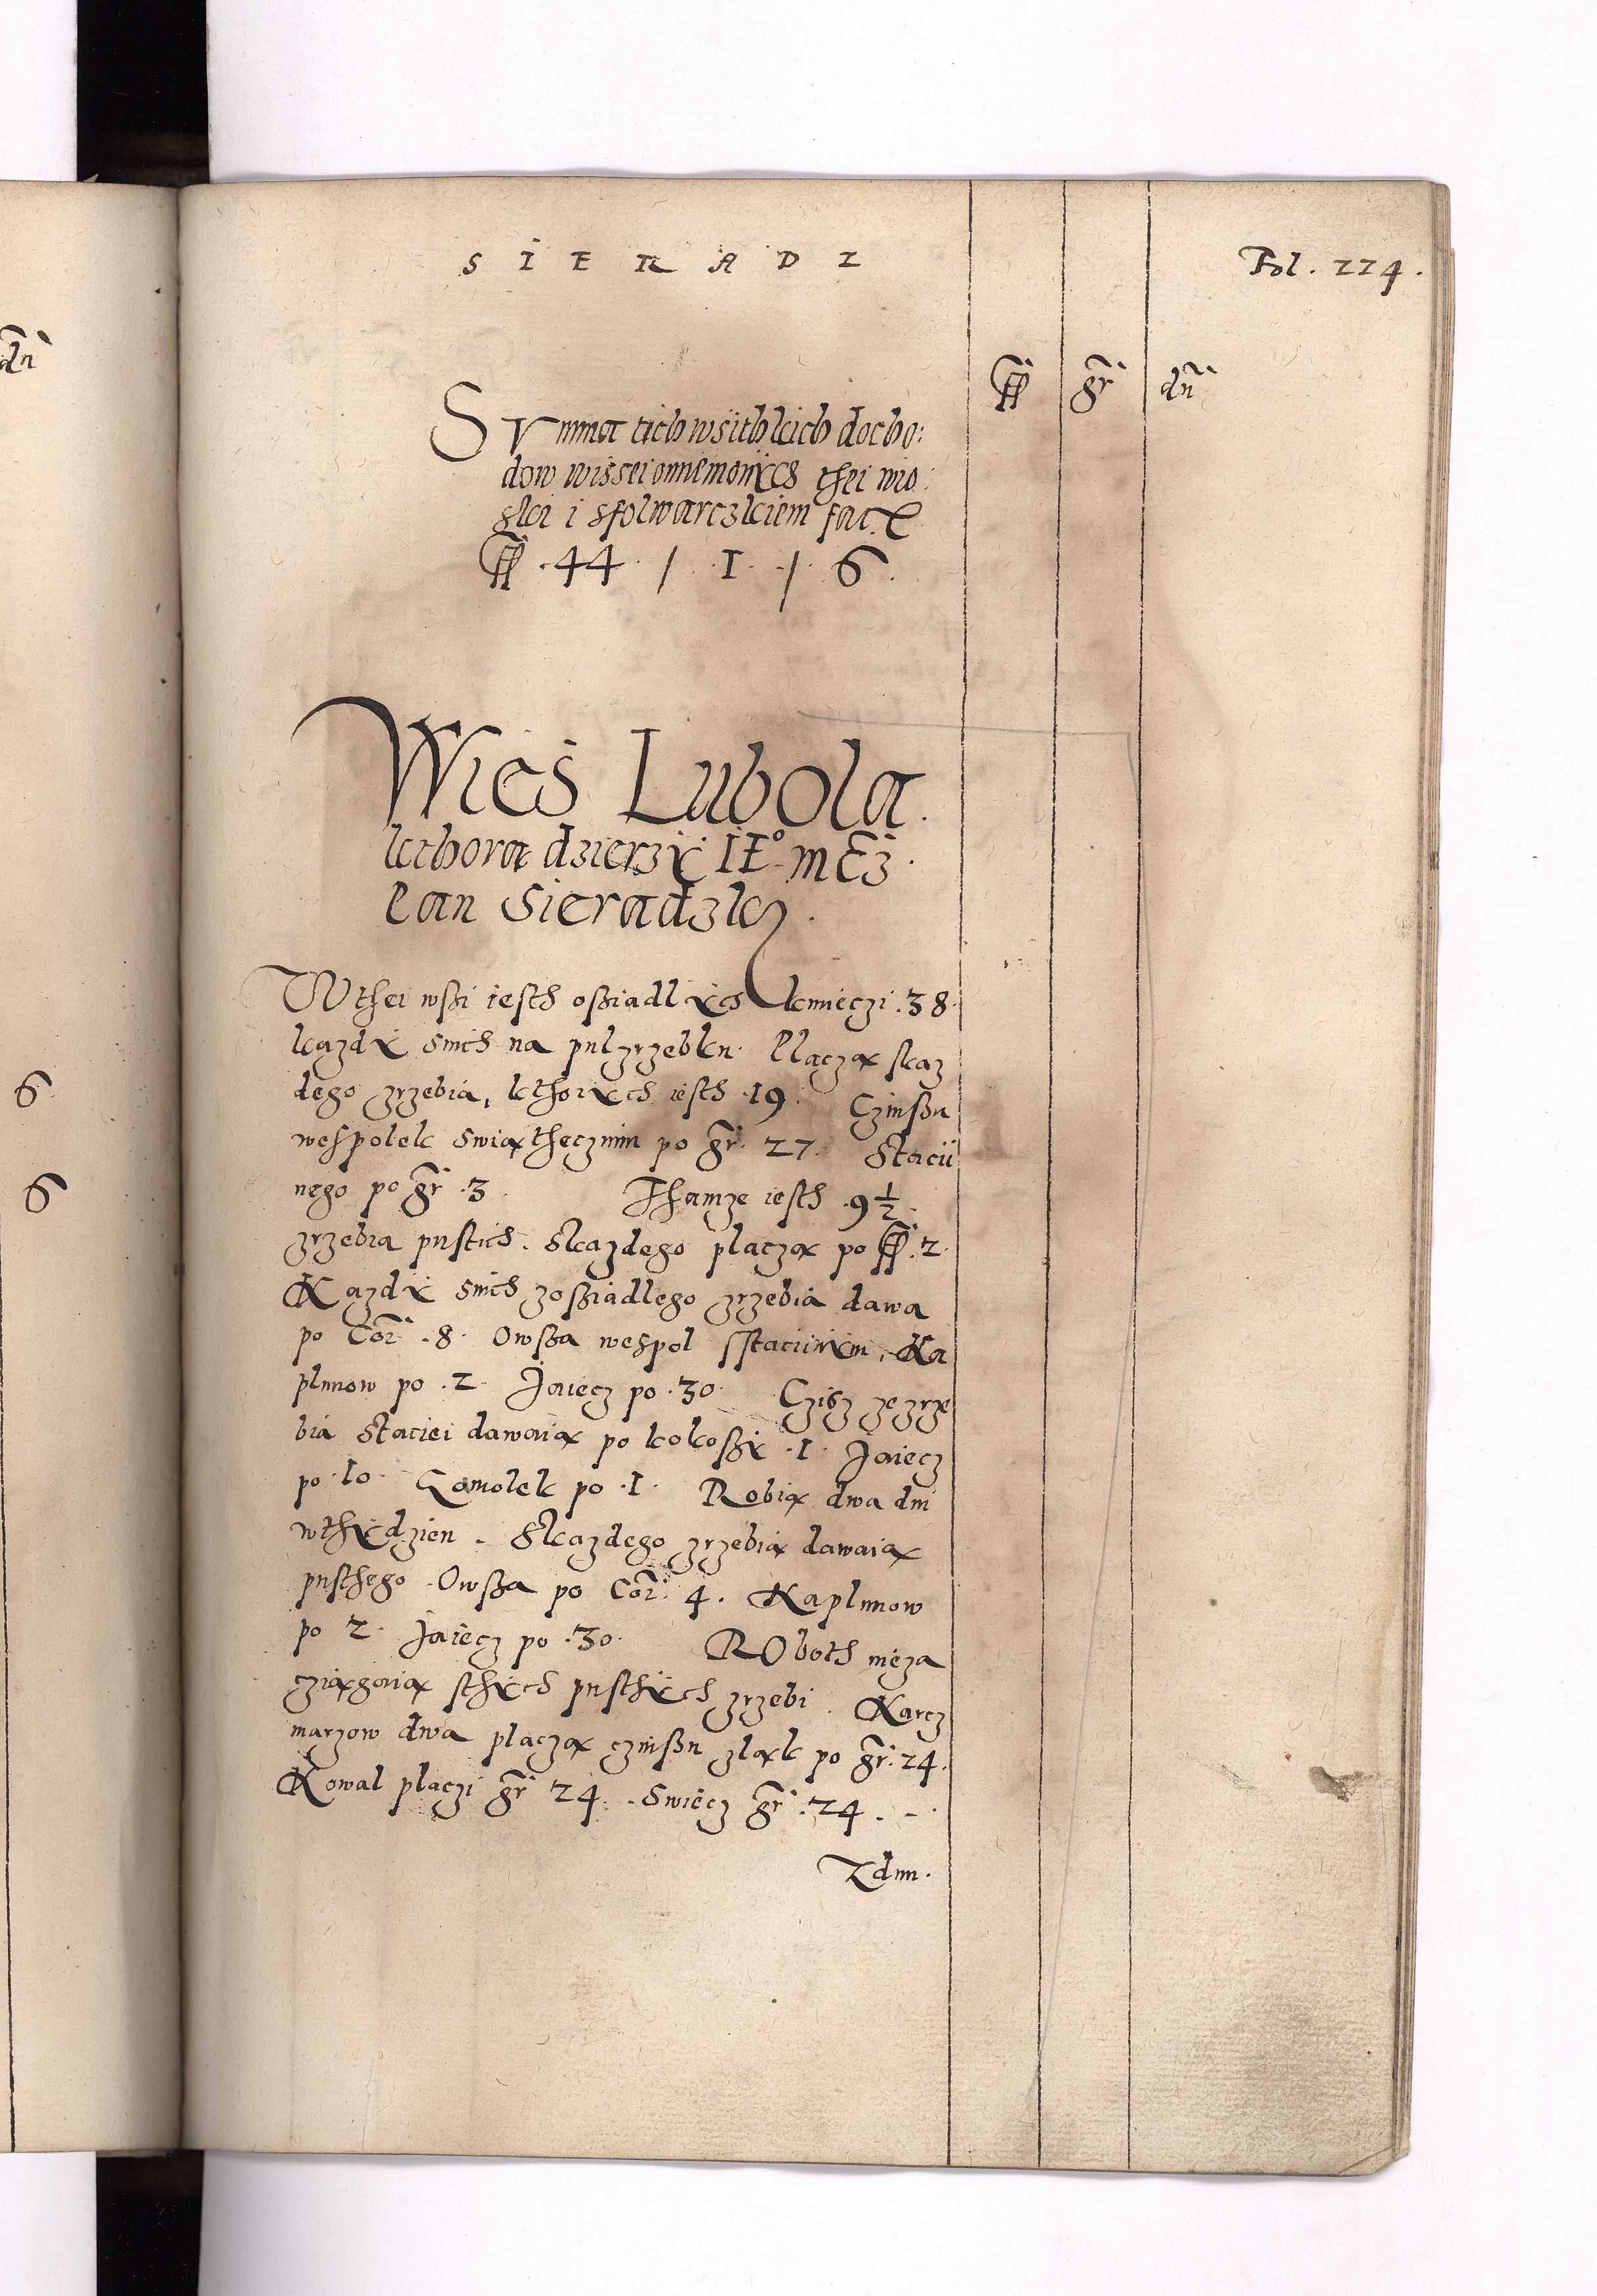 SIERADZ
Fol. 224.
fl gr dn
Summa tich wsithkich docho:
dow wissei omiemonych thei wio
ski i sfolwarczkiem facit
fl. 44 / 1 / 6.
Wies Lubola.
kthora dzierzy IE° M
Pan Sieradzky.
W thei wsзi iesth osзiadlych kmieczi. 38.
kazdy snich na pulzrzebku. Placzą skaz
dego zrzebia, kthorych iesth .19. Czinsзu
wespolek swiąthecznim po gr. 27. Stacii
nego po gr .3. Thamze iesth .9 1/2.
zrzebia pustich. Skazdego placzą po fl. 2.
Kazdy snich zosзiadlego zrzebia dawa
po Cor. 8. Owsзa wespol sstaciinym, Ka
plunow po .2. Jaiecz po .30. Czisz ze zrze
bia Staciei dawaią po kokosзy .1. Jaiecz
po .10. Gomolek po .1. Robią dwa dni
wthydzien. Skazdego zrzebią dawaią
pusthego. Owsзa po Cor. 4. Kaplunow
po 2. Jaiecz po .30. Roboth nieza
cziągaią sthych pusthych zrzebi. Karcz
marzow dwa placzą czinsзu zląk po gr. 24.
Kowal placzi gr 24. Swiecz gr. 24. -
Zdun.
dn
6
6